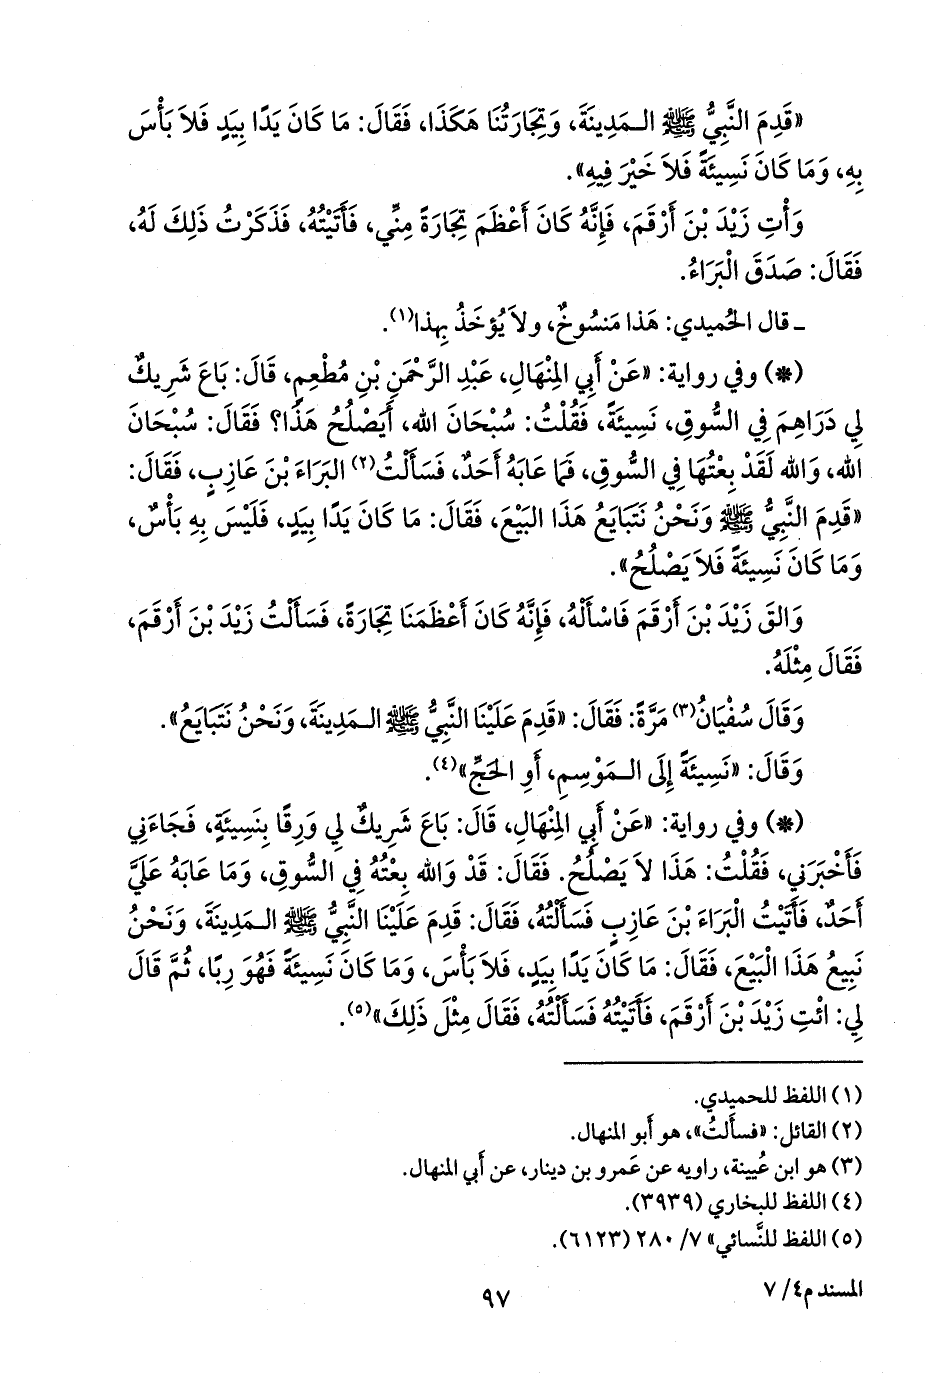 «قَدِمَ النَّبِيُّ ﷺ الـمَدِينَةَ، وَتِجَارَتُنَا هَكَذَا، فَقَالَ: مَا كَانَ يَدًا بِيَدٍ فَلاَ بَأْسَ
بِهِ، وَمَا كَانَ نَسِيئَةً فَلاَ خَيْرَ فِيهِ».
وَأْتِ زَيْدَ بْنَ أَرْقَمَ، فَإِنَّهُ كَانَ أَعْظَمَ تِجَارَةً مِنِّي، فَأَتَيْتُهُ، فَذَكَرْتُ ذَلِكَ لَهُ،
فَقَالَ: صَدَقَ الْبَرَاءُ.
ـ قال الحُميدي: هَذا مَنسُوخٌ، ولاَ يُؤخَذُ بِهذا(١).
(*) وفي رواية: «عَنْ أَبِي المِنْهَالِ، عَبْدِ الرَّحْمَنِ بْنِ مُطْعِمٍ، قَالَ: بَاعَ شَرِيكٌ
لِي دَرَاهِمَ فِي السُّوقِ، نَسِيئَةً، فَقُلْتُ: سُبْحَانَ الله، أَيَصْلُحُ هَذَا؟ فَقَالَ: سُبْحَانَ
الله، وَالله لَقَدْ بِعْتُهَا فِي السُّوقِ، فَمَا عَابَهُ أَحَدٌ، فَسَأَلْتُ(٢) البَرَاءَ بْنَ عَازِبٍ، فَقَالَ:
«قَدِمَ النَّبِيُّ ﷺ وَنَحْنُ نَتَبَايَعُ هَذَا البَيْعَ، فَقَالَ: مَا كَانَ يَدًا بِيَدٍ، فَلَيْسَ بِهِ بَأْسٌ،
وَمَا كَانَ نَسِيئَةً فَلاَ يَصْلُحُ».
وَالقَ زَيْدَ بْنَ أَرْقَمَ فَاسْأَلْهُ، فَإِنَّهُ كَانَ أَعْظَمَنَا تِجَارَةً، فَسَأَلْتُ زَيْدَ بْنَ أَرْقَمَ،
فَقَالَ مِثْلَهُ.
وَقَالَ سُفْيَانُ(٣) مَرَّةً: فَقَالَ: «قَدِمَ عَلَيْنَا النَّبِيُّ ﷺ الـمَدِينَةَ، وَنَحْنُ نَتَبَايَعُ».
وَقَالَ: «نَسِيئَةً إِلَى الـمَوْسِمِ، أَوِ الحَجِّ»(٤).
(*) وفي رواية: «عَنْ أَبِي المِنْهَالِ، قَالَ: بَاعَ شَرِيكٌ لِي وَرِقًا بِنَسِيئَةٍ، فَجَاءَنِي
فَأَخْبَرَنِي، فَقُلْتُ: هَذَا لاَ يَصْلُحُ. فَقَالَ: قَدْ وَالله بِعْتُهُ فِي السُّوقِ، وَمَا عَابَهُ عَلَيَّ
أَحَدٌ، فَأَتَيْتُ الْبَرَاءَ بْنَ عَازِبٍ فَسَأَلْتُهُ، فَقَالَ: قَدِمَ عَلَيْنَا النَّبِيُّ ﷺ الـمَدِينَةَ، وَنَحْنُ
نَبِيعُ هَذَا الْبَيْعَ، فَقَالَ: مَا كَانَ يَدًا بِيَدٍ، فَلاَ بَأْسَ، وَمَا كَانَ نَسِيئَةً فَهُوَ رِبًا، ثُمَّ قَالَ
لِي: ائْتِ زَيْدَ بْنَ أَرْقَمَ، فَأَتَيْتُهُ فَسَأَلْتُهُ، فَقَالَ مِثْلَ ذَلِكَ»(٥).
(١) اللفظ للحميدي.
(٢) القائل: «فسألتُ»، هو أَبو المنهال.
(٣) هو ابن عُيينة، راويه عن عَمرو بن دينار، عن أَبي المنهال.
(٤) اللفظ للبخاري (٣٩٣٩).
(٥) اللفظ للنَّسائي» ٧/ ٢٨٠ (٦١٢٣).
المسند م٤/ ٧
٩٧